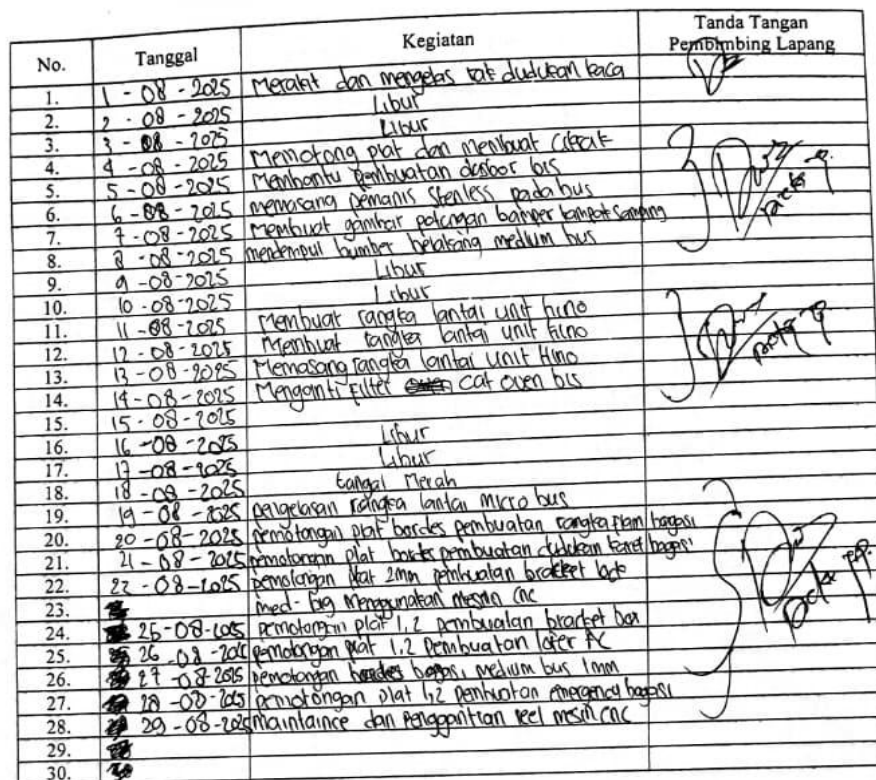 No. Tanggal Kegiatan Tanda Tangan Pembimbing Lapang
1. 1 - 08 - 2025 Merakit dan mengelas dudukan kaca
2. 2 - 08 - 2025 Libur
3. 3 - 08 - 2025 Libur
4. 4 - 08 - 2025 Memotong plat dan membuat
5. 5 - 08 - 2025 Membantu pembuatan dasbor bis
6. 6 - 08 - 2025 memasang pemanis stenless pada bus
7. 7 - 08 - 2025 Membuat gambar potongan bamper tampak samping
8. 8 - 08 - 2025 mendempul bumber belakang medium bus
9. 9 - 08 - 2025 Libur
10. 10 - 08 - 2025 Libur
11. 11 - 08 - 2025 Membuat rangka lantai unit hino
12. 12 - 08 - 2025 Membuat rangka lantai unit hino
13. 13 - 08 - 2025 Memasang rangka lantai unit Hino
14. 14 - 08 - 2025 Menganti Filter cat oven bis
15. 15 - 08 - 2025
16. 16 - 08 - 2025 Libur
17. 17 - 08 - 2025 Libur
18. 18 - 08 - 2025 tanggal Merah
19. 19 - 08 - 2025 pengelasan rangka lantai micro bus
20. 20 - 08 - 2025 pemotongan plat bordes pembuatan rangka bagasi
21. 21 - 08 - 2025 pemotongan plat bordes pembuatan dudukan karet bagasi
22. 22 - 08 - 2025 pemotongan plat 2mm pembuatan bracket
23. med-big menggunakan mesin cnc
24. 25 - 08 - 2025 pemotongan plat 1,2 pembuatan bracket box
25. 26 - 08 - 2025 pemotongan plat 1,2 pembuatan AC
26. 27 - 08 - 2025 pemotongan bordes bagasi medium bus 1mm
27. 28 - 08 - 2025 pemotongan plat 1,2 pembuatan emergency bagasi
28. 29 - 08 - 2025 maintaince dan penggantian reel mesin cnc
29.
30.